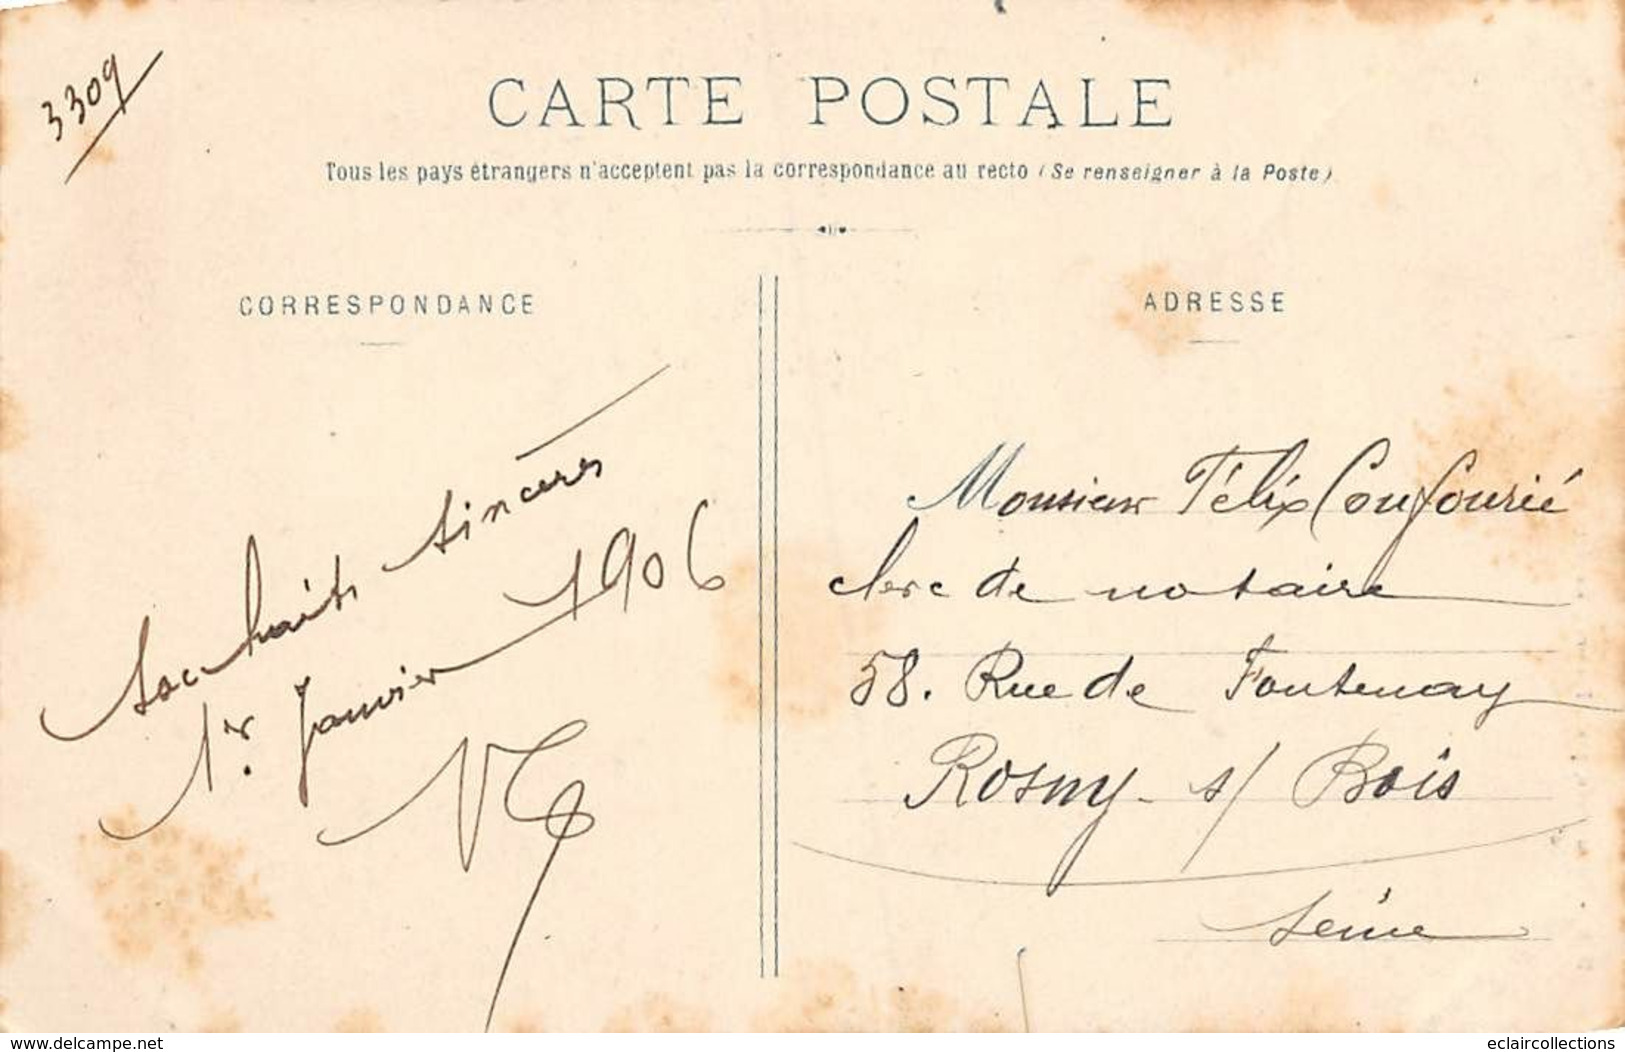 3309
CARTE POSTALE
Tous les pays étrangers n'acceptent pas la correspondance au recto (Se renseigner à la Poste)
CORRESPONDANCE
Souhaits sincères
1er. Janvier 1906
ADRESSE
Monsieur Félix Confourié
clerc de notaire
58. Rue de Fontenay
Rosny s/ Bois
Seine
www.delcampe.net
eclaircollections